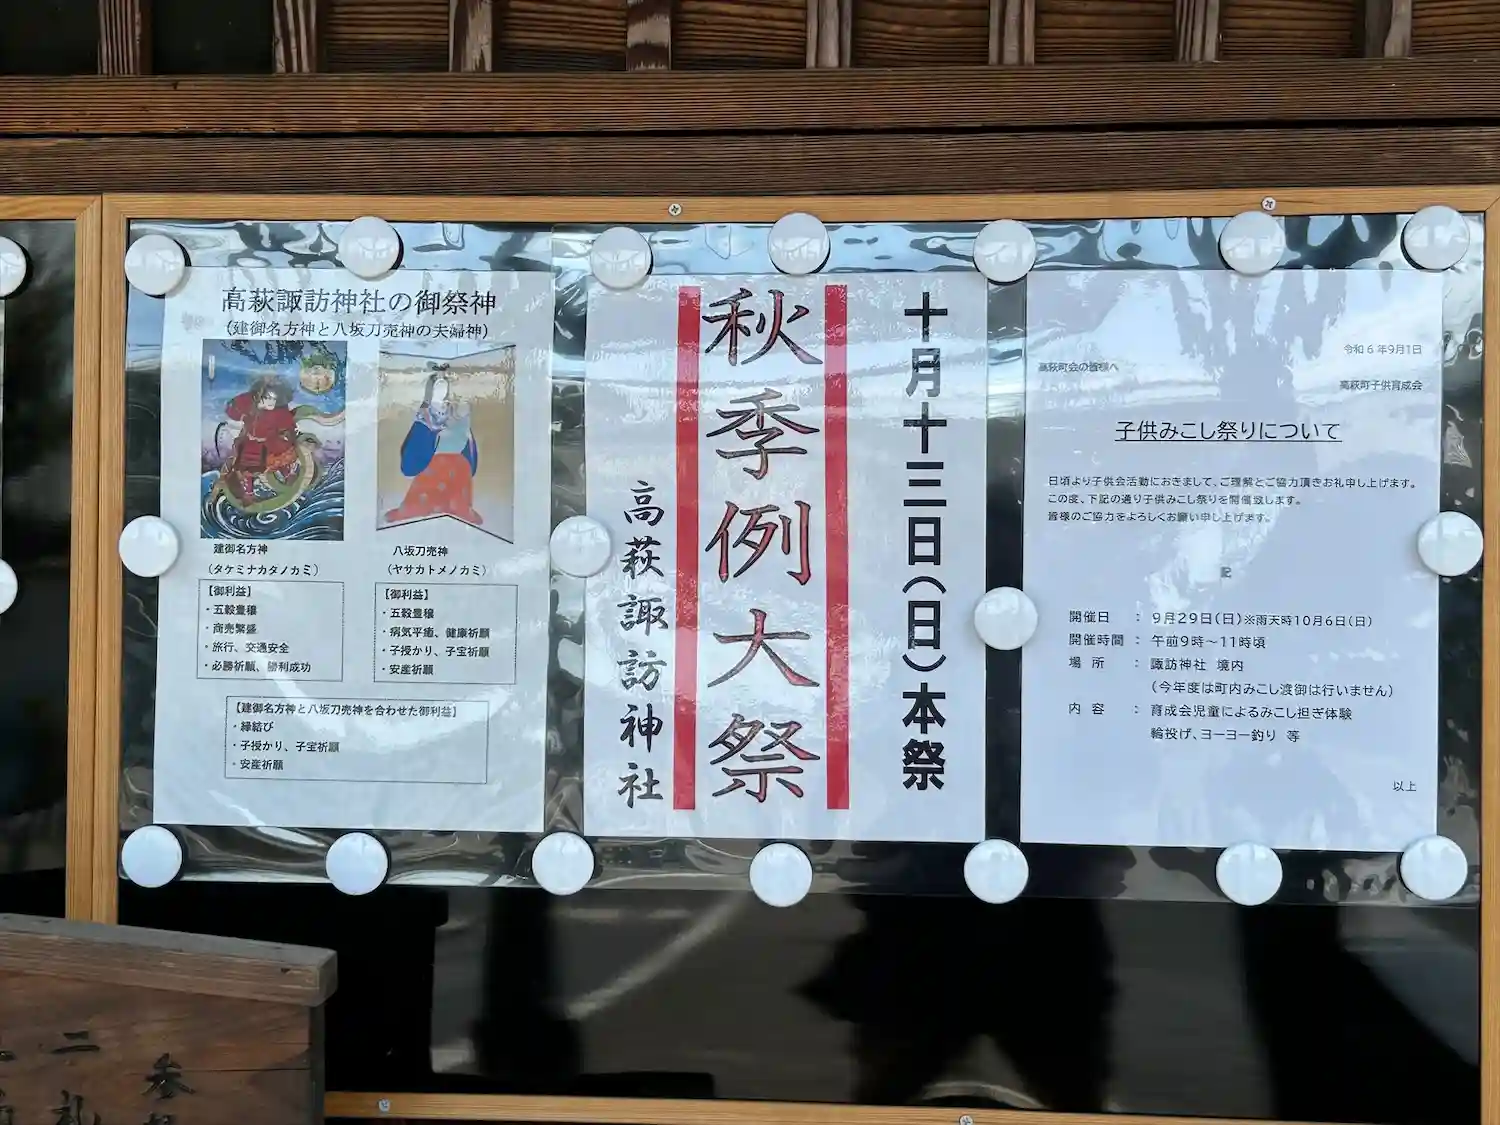 高萩諏訪神社の御祭神
(建御名方神と八坂刀売神の夫婦神)
建御名方神
(タケミナカタノカミ)
【御利益】
・五穀豊穣
・商売繁盛
・旅行、交通安全
・必勝祈願、勝利成功
八坂刀売神
(ヤサカトメノカミ)
【御利益】
・五穀豊穣
・病気平癒、健康祈願
・子授かり、子宝祈願
・安産祈願
【建御名方神と八坂刀売神を合わせた御利益】
・縁結び
・子授かり、子宝祈願
・安産祈願
十月十三日(日)本祭
秋季例大祭
高萩諏訪神社
令和6年9月1日
高萩町会の皆様へ
高萩町子供育成会
子供みこし祭りについて
日頃より子供会活動におきまして、ご理解とご協力頂きお礼申し上げます。
この度、下記の通り子供みこし祭りを開催致します。
皆様のご協力をよろしくお願い申し上げます。
記
開催日 : 9月29日(日)※雨天時10月6日(日)
開催時間 : 午前9時~11時頃
場 所 : 諏訪神社 境内
(今年度は町内みこし渡御は行いません)
内 容 : 育成会児童によるみこし担ぎ体験
輪投げ、ヨーヨー釣り 等
以上